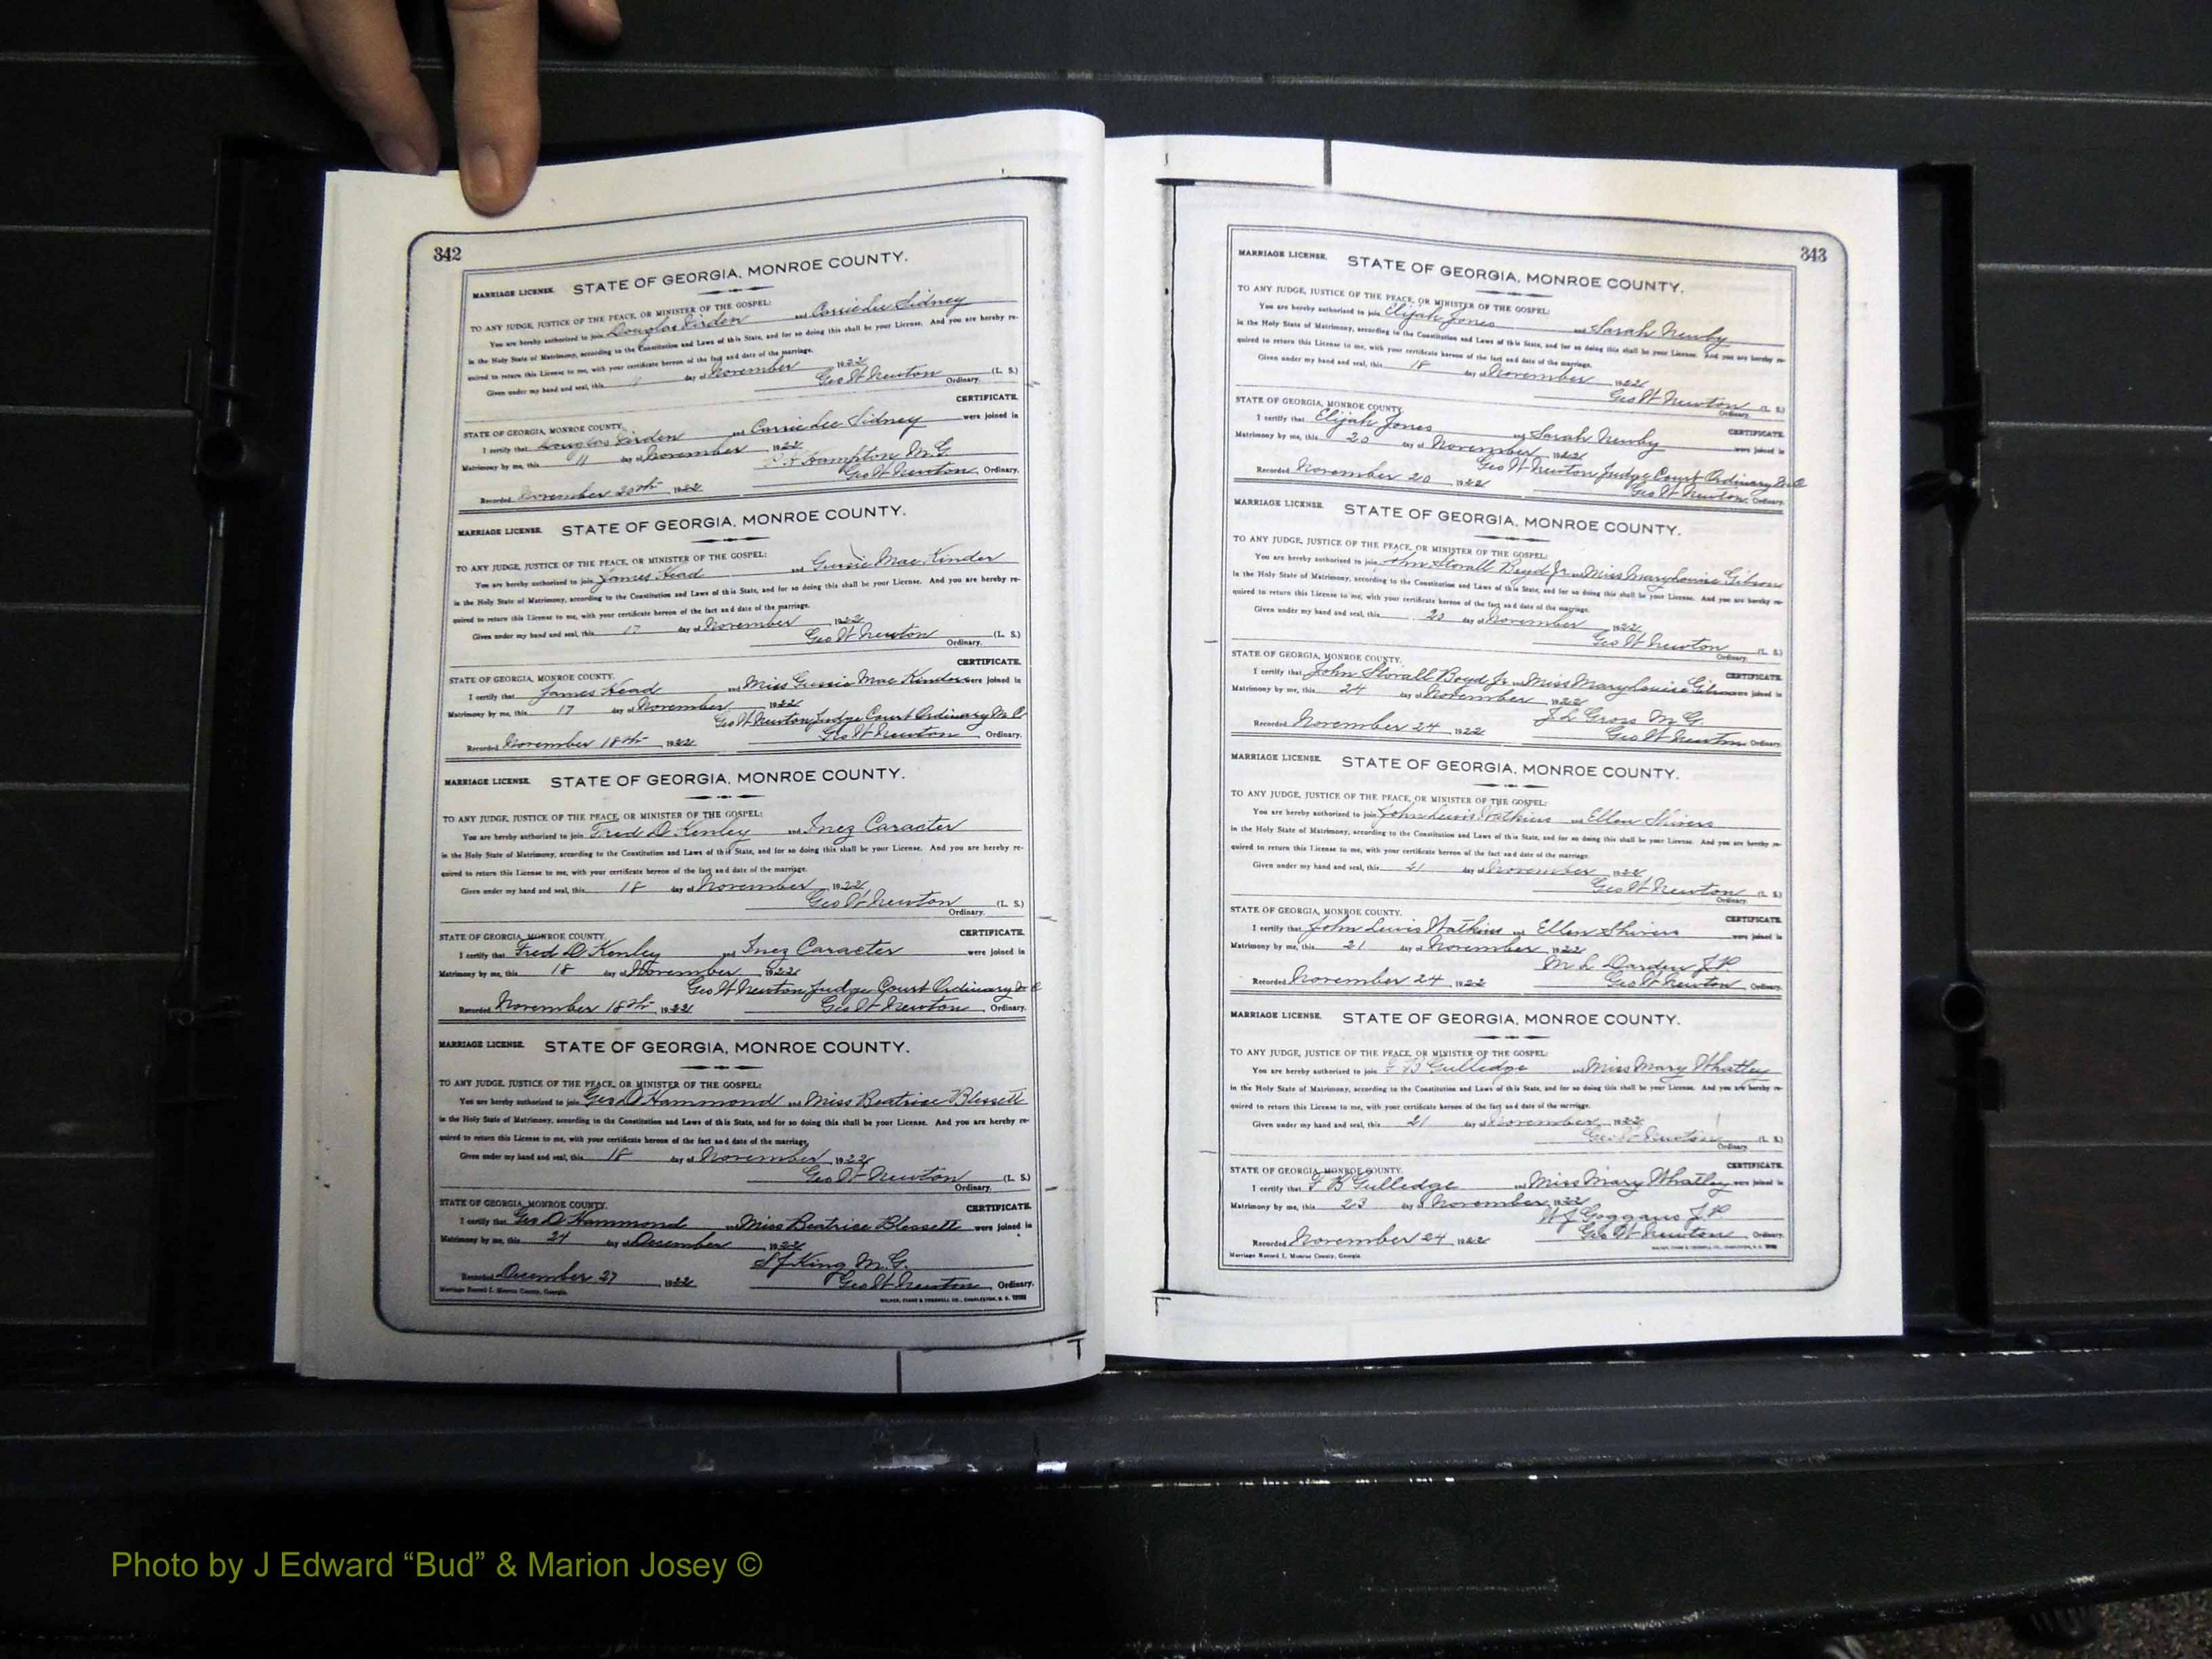 342
MARRIAGE LICENSE. STATE OF GEORGIA, MONROE COUNTY.
TO ANY JUDGE, JUSTICE OF THE PEACE, OR MINISTER OF THE GOSPEL:
You are hereby authorized to join Douglas and Carrie Lee Sidney
in the Holy State of Matrimony, according to the Constitution and Laws of this State, and for so doing this shall be your License. And you are hereby re-
quired to return this License to me, with your certificate hereon of the fact and date of the marriage.
Given under my hand and seal, this 11 day of November 1922
Geo W Newton (L. S.)
Ordinary.
CERTIFICATE.
STATE OF GEORGIA, MONROE COUNTY.
I certify that Douglas and Carrie Lee Sidney were joined in
Matrimony by me, this 11 day of November 1922
Hampton M.G.
Recorded November 20th 1922 Geo W Newton, Ordinary.
MARRIAGE LICENSE. STATE OF GEORGIA, MONROE COUNTY.
TO ANY JUDGE, JUSTICE OF THE PEACE, OR MINISTER OF THE GOSPEL:
You are hereby authorized to join James Head and Gussie Mae Kinder
in the Holy State of Matrimony, according to the Constitution and Laws of this State, and for so doing this shall be your License. And you are hereby re-
quired to return this License to me, with your certificate hereon of the fact and date of the marriage.
Given under my hand and seal, this 17 day of November 1922
Geo W Newton (L. S.)
Ordinary.
CERTIFICATE.
STATE OF GEORGIA, MONROE COUNTY.
I certify that James Head and Miss Gussie Mae Kinder were joined in
Matrimony by me, this 17 day of November 1922
Geo W Newton Judge Court Ordinary M C
Recorded November 18th 1922 Geo W Newton, Ordinary.
MARRIAGE LICENSE. STATE OF GEORGIA, MONROE COUNTY.
TO ANY JUDGE, JUSTICE OF THE PEACE, OR MINISTER OF THE GOSPEL:
You are hereby authorized to join Fred D Kenley and Inez Caracter
in the Holy State of Matrimony, according to the Constitution and Laws of this State, and for so doing this shall be your License. And you are hereby re-
quired to return this License to me, with your certificate hereon of the fact and date of the marriage.
Given under my hand and seal, this 18 day of November 1922
Geo W Newton (L. S.)
Ordinary.
CERTIFICATE.
STATE OF GEORGIA, MONROE COUNTY.
I certify that Fred D Kenley and Inez Caracter were joined in
Matrimony by me, this 18 day of November 1922
Geo W Newton Judge Court Ordinary M C
Recorded November 18th 1922 Geo W Newton, Ordinary.
MARRIAGE LICENSE. STATE OF GEORGIA, MONROE COUNTY.
TO ANY JUDGE, JUSTICE OF THE PEACE, OR MINISTER OF THE GOSPEL:
You are hereby authorized to join Geo D Hammond and Miss Beatrice Blessett
in the Holy State of Matrimony, according to the Constitution and Laws of this State, and for so doing this shall be your License. And you are hereby re-
quired to return this License to me, with your certificate hereon of the fact and date of the marriage.
Given under my hand and seal, this 18 day of November 1922
Geo W Newton (L. S.)
Ordinary.
CERTIFICATE.
STATE OF GEORGIA, MONROE COUNTY.
I certify that Geo D Hammond and Miss Beatrice Blessett were joined in
Matrimony by me, this 24 day of December 1922
S J King M.G.
Recorded December 27 1922 Geo W Newton, Ordinary.
Marriage Record I. Monroe County, Georgia.
WALKER, EVANS & COGSWELL CO., CHARLESTON, S. C.
343
MARRIAGE LICENSE. STATE OF GEORGIA, MONROE COUNTY.
TO ANY JUDGE, JUSTICE OF THE PEACE, OR MINISTER OF THE GOSPEL:
You are hereby authorized to join Elijah Jones and Sarah Newby
in the Holy State of Matrimony, according to the Constitution and Laws of this State, and for so doing this shall be your License. And you are hereby re-
quired to return this License to me, with your certificate hereon of the fact and date of the marriage.
Given under my hand and seal, this 18 day of November 1922
Geo W Newton (L. S.)
Ordinary.
STATE OF GEORGIA, MONROE COUNTY.
CERTIFICATE.
I certify that Elijah Jones and Sarah Newby were joined in
Matrimony by me, this 20 day of November 1922
Geo W Newton Judge Court Ordinary M C
Recorded November 20 1922 Geo W Newton, Ordinary.
MARRIAGE LICENSE. STATE OF GEORGIA, MONROE COUNTY.
TO ANY JUDGE, JUSTICE OF THE PEACE, OR MINISTER OF THE GOSPEL:
You are hereby authorized to join John Stovall Boyd Jr and Miss Mary Louise Gibson
in the Holy State of Matrimony, according to the Constitution and Laws of this State, and for so doing this shall be your License. And you are hereby re-
quired to return this License to me, with your certificate hereon of the fact and date of the marriage.
Given under my hand and seal, this 20 day of November 1922
Geo W Newton (L. S.)
Ordinary.
STATE OF GEORGIA, MONROE COUNTY.
CERTIFICATE.
I certify that John Stovall Boyd Jr and Miss Mary Louise Gibson were joined in
Matrimony by me, this 24 day of November 1922
J L Gross M.G.
Recorded November 24 1922 Geo W Newton Ordinary.
MARRIAGE LICENSE. STATE OF GEORGIA, MONROE COUNTY.
TO ANY JUDGE, JUSTICE OF THE PEACE, OR MINISTER OF THE GOSPEL:
You are hereby authorized to join John Lewis Watkins and Ellen Shivers
in the Holy State of Matrimony, according to the Constitution and Laws of this State, and for so doing this shall be your License. And you are hereby re-
quired to return this License to me, with your certificate hereon of the fact and date of the marriage.
Given under my hand and seal, this 21 day of November 1922
Geo W Newton (L. S.)
Ordinary.
STATE OF GEORGIA, MONROE COUNTY.
CERTIFICATE.
I certify that John Lewis Watkins and Ellen Shivers were joined in
Matrimony by me, this 21 day of November 1922
M L Darden J.P.
Recorded November 24 1922 Geo W Newton, Ordinary.
MARRIAGE LICENSE. STATE OF GEORGIA, MONROE COUNTY.
TO ANY JUDGE, JUSTICE OF THE PEACE, OR MINISTER OF THE GOSPEL:
You are hereby authorized to join F B Gulledge and Miss Mary Whatley
in the Holy State of Matrimony, according to the Constitution and Laws of this State, and for so doing this shall be your License. And you are hereby re-
quired to return this License to me, with your certificate hereon of the fact and date of the marriage.
Given under my hand and seal, this 21 day of November 1922
Geo W Newton (L. S.)
Ordinary.
CERTIFICATE.
STATE OF GEORGIA, MONROE COUNTY.
I certify that F B Gulledge and Miss Mary Whatley were joined in
Matrimony by me, this 23 day of November 1922
W J Goggans J.P.
Recorded November 24 1922 Geo W Newton Ordinary.
Marriage Record I. Monroe County, Georgia.
WALKER, EVANS & COGSWELL CO., CHARLESTON, S. C.
Photo by J Edward “Bud” & Marion Josey ©